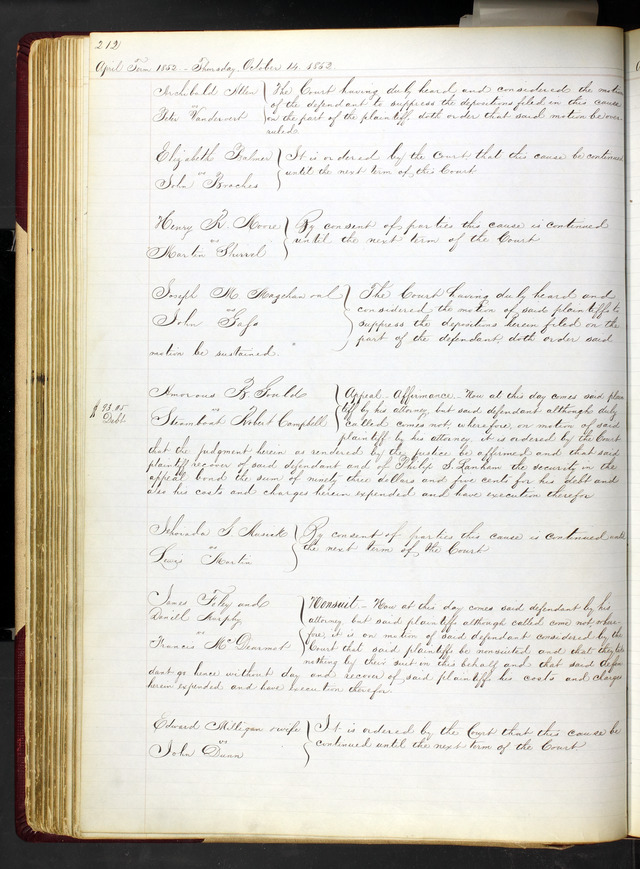 212
April Term 1852 - Thursday, October 14, 1852.
Archibald Allen
vs
Peter Vandervert
The Court having duly heard and considered the motion
of the defendant to suppress the depositions filed in this cause
on the part of the plaintiff doth order that said motion be over-
ruled
Elizabeth
vs
John Broches
It is ordered by the Court that this cause be continued
until the next term of the Court
Henry R. Moore
vs
Martin
By consent of parties this cause is continued
until the next term of the Court
Joseph M.
vs
John
The Court having duly heard and
considered the motion of said plaintiffs to
suppress the depositions herein filed on the
part of the defendant, doth order said
motion be sustained.
93.05
Debt
Amorous R. Gould
vs
Steamboat Robert Campbell
Appeal. Affirmance - Now at this day comes said plain
tiff by his attorney, but said defendant although duly
called comes not, wherefore, on motion of said
plaintiff by his attorney it is ordered by the Court
that the judgment herein as rendered by the Justice be affirmed and that said
plaintiff recover of said defendant and of Philip S. Lanham the security in the
appeal bond the sum of ninety three dollars and five cents for his debt and
also his costs and charges herein expended and have execution therefor
vs
Lewis Martin
By consent of parties this cause is continued until
the next term of the Court
James Foley and
Daniel Murphy
vs
Francis McDearmot
Nonsuit - Now at this day comes said defendant by his
attorney but said plaintiffs although called come not where-
fore it is on motion of said defendant considered by the
Court that said plaintiffs be nonsuited and that they take
nothing by their suit in this behalf and that said defen
dant go hence without day and recover of said plaintiffs his costs and charges
herein expended and have execution therefor.
Edward Milligan & wife
vs
John Dunn
It is ordered by the Court that this cause be
continued until the next term of the Court